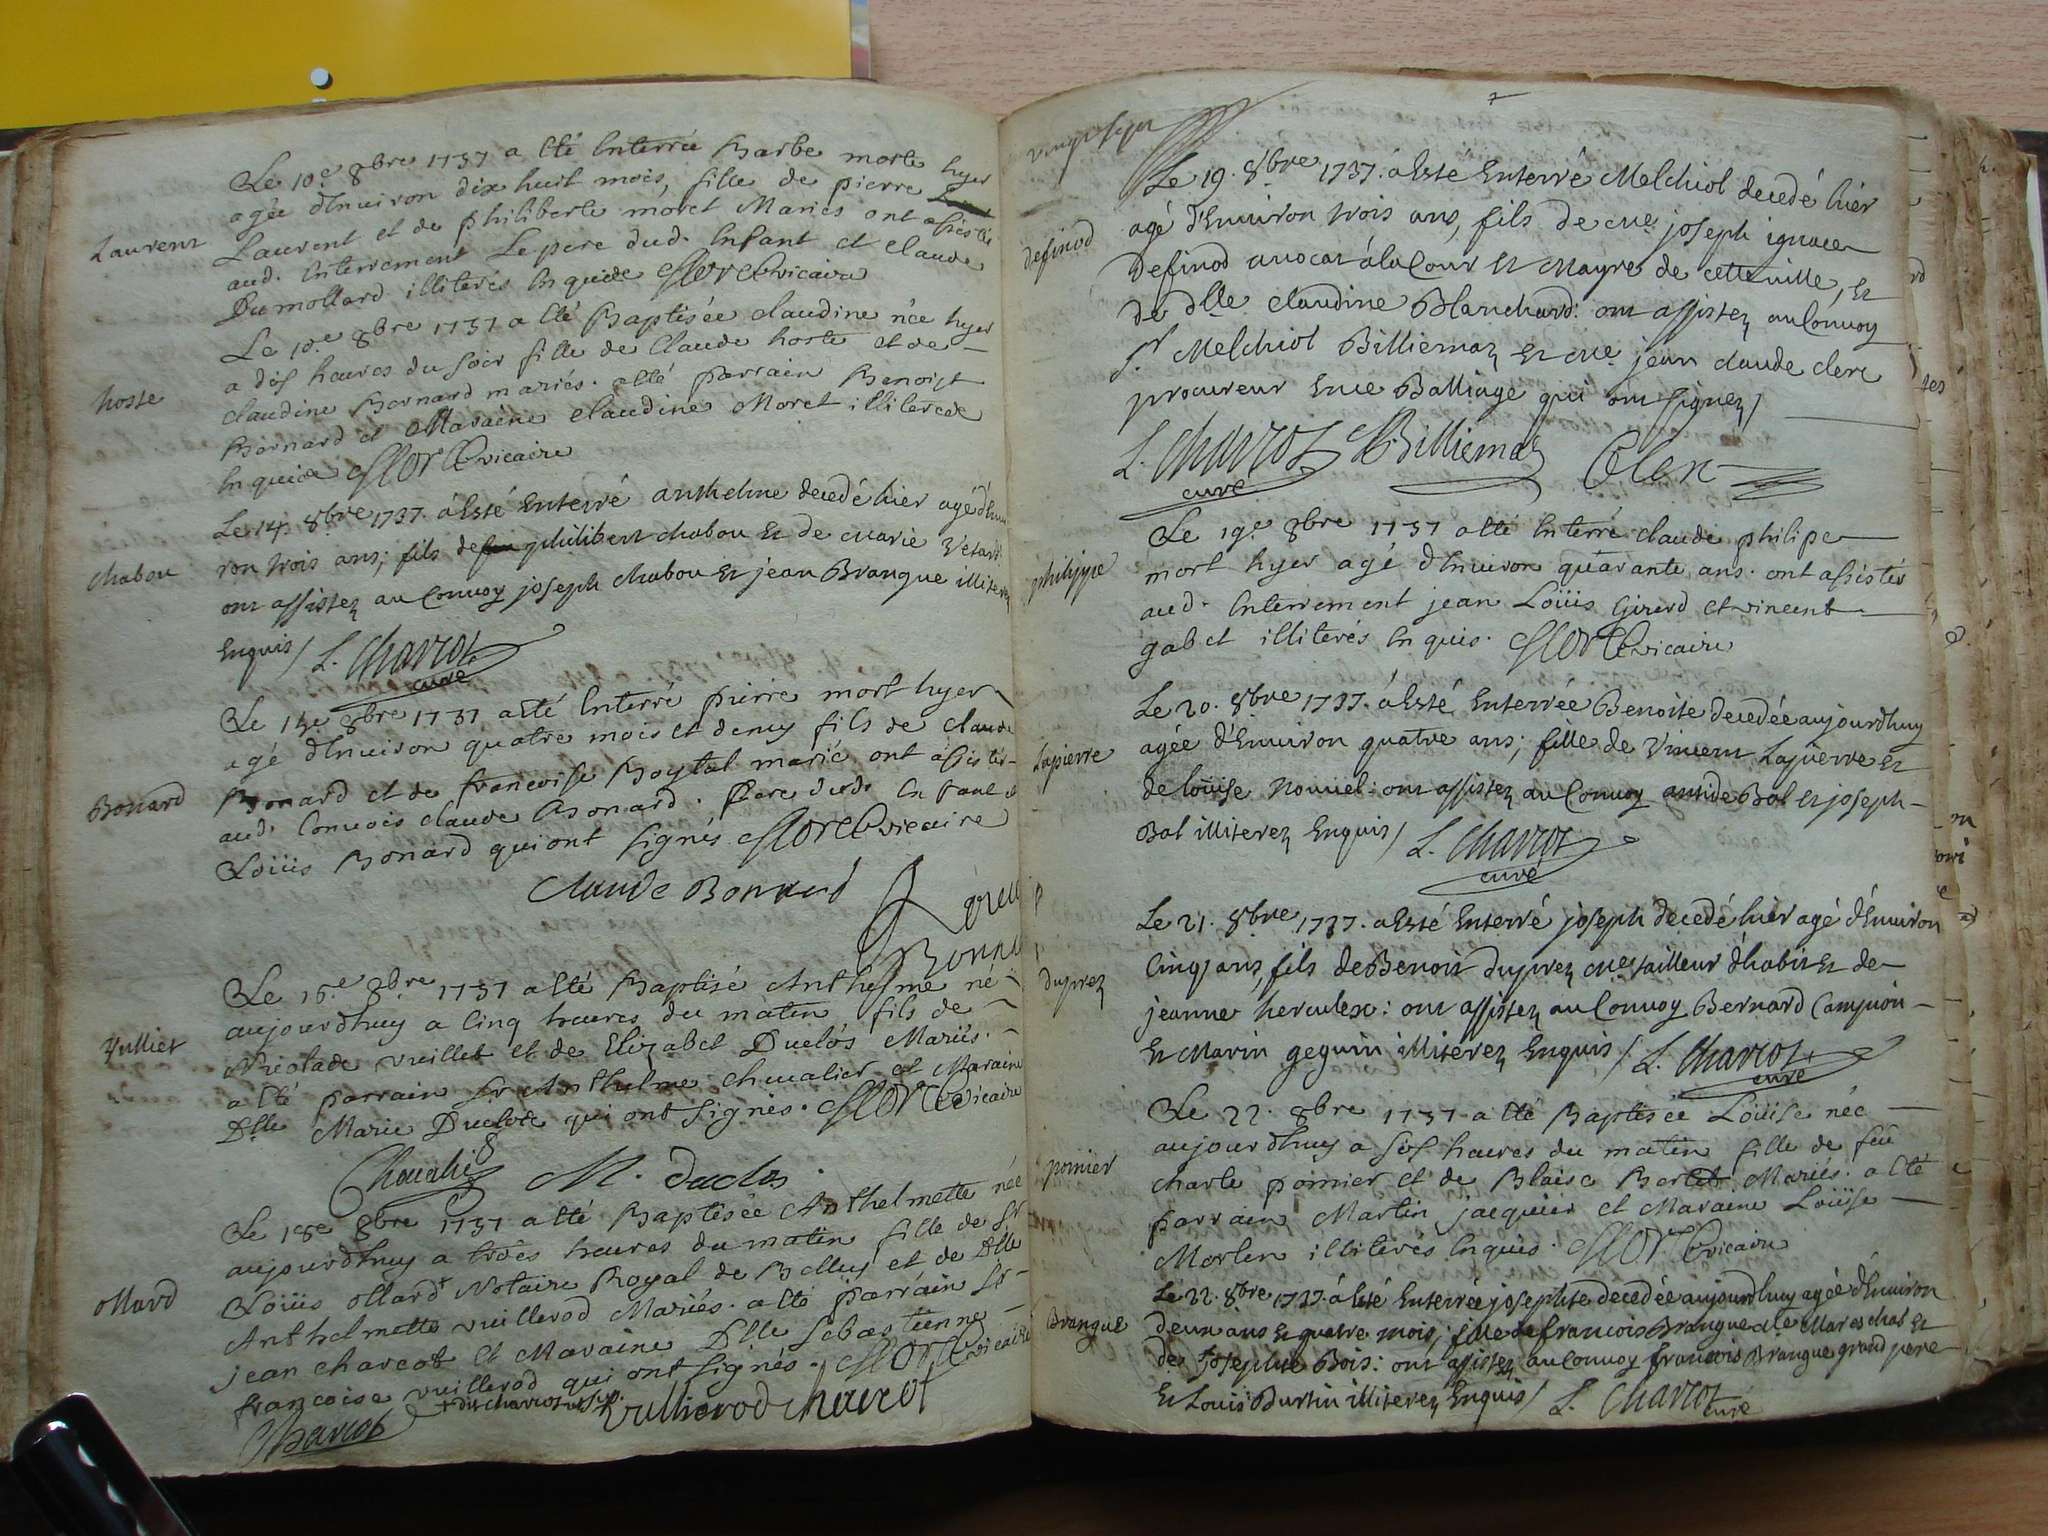 Le 10.e 8bre 1737 a été Enterrée Barbe morte hyer
agée d'Environ dix huit mois, fille de pierre
Laurent
Laurent et de philiberte moret Mariés ont assistés
aud. Enterrement Le pere dud. Enfant et Claude
Dumollard illiterés Enquide Morel vicaire
Le 10.e 8bre 1737 a été Baptisée claudine née hyer
a dis heures du soir fille de Claude hoste et de
hoste
claudine Bornard mariés. a été parrain Benoist
Bornard et Maraine claudine Moret illiterée
Enquise Morel vicaire
Le 14. 8bre 1737. a Esté Enterré anthelme decedé hier agé d'Envi
chabou
ron trois ans; fils de philibert chabou Et de marie
ont assistez au Convoy joseph chabou Et jean Brangue illiterez
Enquis / L. Charcot
curé
Le 15.e 8bre 1737 a été Enterré pierre mort hyer
agé d'Environ quatre mois et demy fils de claude
Bonard
Bonard et de francoise Boytal marié ont assistés
aud. Convois claude Bonard. Pere dud. Enfant et
Loüis Bonard qui ont signés. Morel vicaire
Claude Bonard
Le 16.e 8bre 1737 a été Baptisé Anthelme né
aujourdhuy a Cinq heures du matin fils de
Vulliet
Nicolade vuillet et de Elizabet Duclós Mariés.
a été parrain Sr Anthelme chevalier et Maraine
Dlle Marie Duclos qui ont signés. Morel vicaire
Chevalier M. duclos.
Le 18e 8bre 1737 a été Baptisée Anthelmette née
aujourdhuy a trois heures du matin fille de Sr
ollard
Loüis ollard + Notaire Royal de Belley et de Dlle
Anthelmette vuillerod Mariés. a été parrain Sr
jean charcot et Maraine Dlle Sebastienne
francoise vuillerod qui ont signés. Morel vicaire
Charcot vullierod charcot
Le 19. 8bre 1737. a Esté Enterré Melchiol decedé hiér
agé d'Environ trois ans, fils de me. joseph ignace
definod
Definod avocat à la Cour Et Mayre de cette ville, Et
de dlle claudine Blanchard: ont assistez au Convoy
sr Melchiol Billiemaz Et me. jean claude clerc
procureur En ce Balliage qui ont signez /
L. Charcot MBilliemaz Clerc
curé
Le 19.e 8bre 1737 a été Enterré claude philipe
philippe
mort hyer agé d'Environ quarante ans. ont assistés
aud. Enterrement jean Loüis Girerd et vincent
gabet illiterés Enquis. Morel vicaire
Le 20. 8bre 1737. a Esté Enterrée Benoite decedée aujourdhuy
Lapierre
agée d'Environ quatre ans; fille de Vincent Lapierre Et
de loüise Nouvel: ont assistez au Convoy antide Bal Et joseph
Bal illiterez Enquis / L. Charcot
curé
Le 21. 8bre 1737. a Esté Enterré joseph decedé hiér agé d'Environ
duprez
Cinq ans, fils de Benoit duprez me. tailleur d'habit Et de
jeanne herculex: ont assistez au Convoy Bernard Campion
Et Marin geguin illiterez Enquis / L. Charcot
curé
Le 22. 8bre 1737 a été Baptisée Loüise née
aujourdhuy a sis heures du matin fille de feu
poinier
charle poinier et de Blaise Mariés. a été
parrain Martin jacquier et Maraine Loüise
Morlen illiterés Enquis. Morel vicaire
Le 22. 8bre 1737. a Esté Enterrée josephte decedée aujourdhuy agée d'Environ
Brangue
deux ans Et quatre mois; fille de francois Brangue me Mareschal Et
de Josephte Bois: ont assistez au Convoy francois Brangue grand pere
Et Louis Burtin illiterez Enquis / L. Charcot
curé